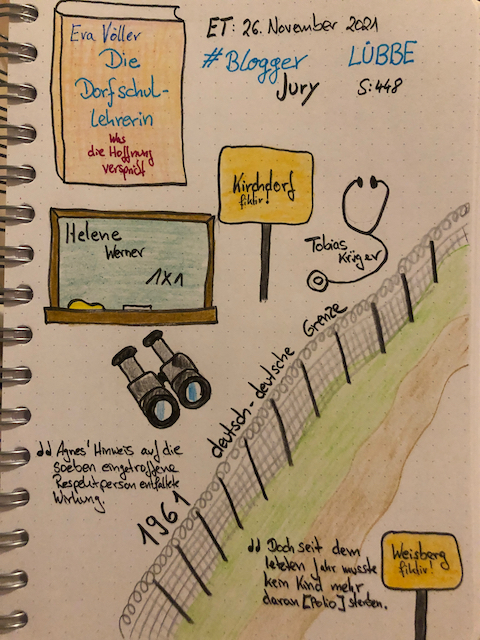 Eva Völler
Die
Dorfschul-
lehrerin
Was
die Hoffnung
verspricht
ET: 26. November 2021
#Blogger
Jury
LÜBBE
S: 448
Kirchdorf
fiktiv!
Helene
Werner
1x1
Tobias
Krüger
deutsch-deutsche Grenze
1961
„ Agnes' Hinweis auf die
soeben eingetroffene
Respektperson entfaltete
Wirkung.
„ Doch seit dem
letzten Jahr musste
kein Kind mehr
daran [Polio] sterben.
Weisberg
fiktiv!